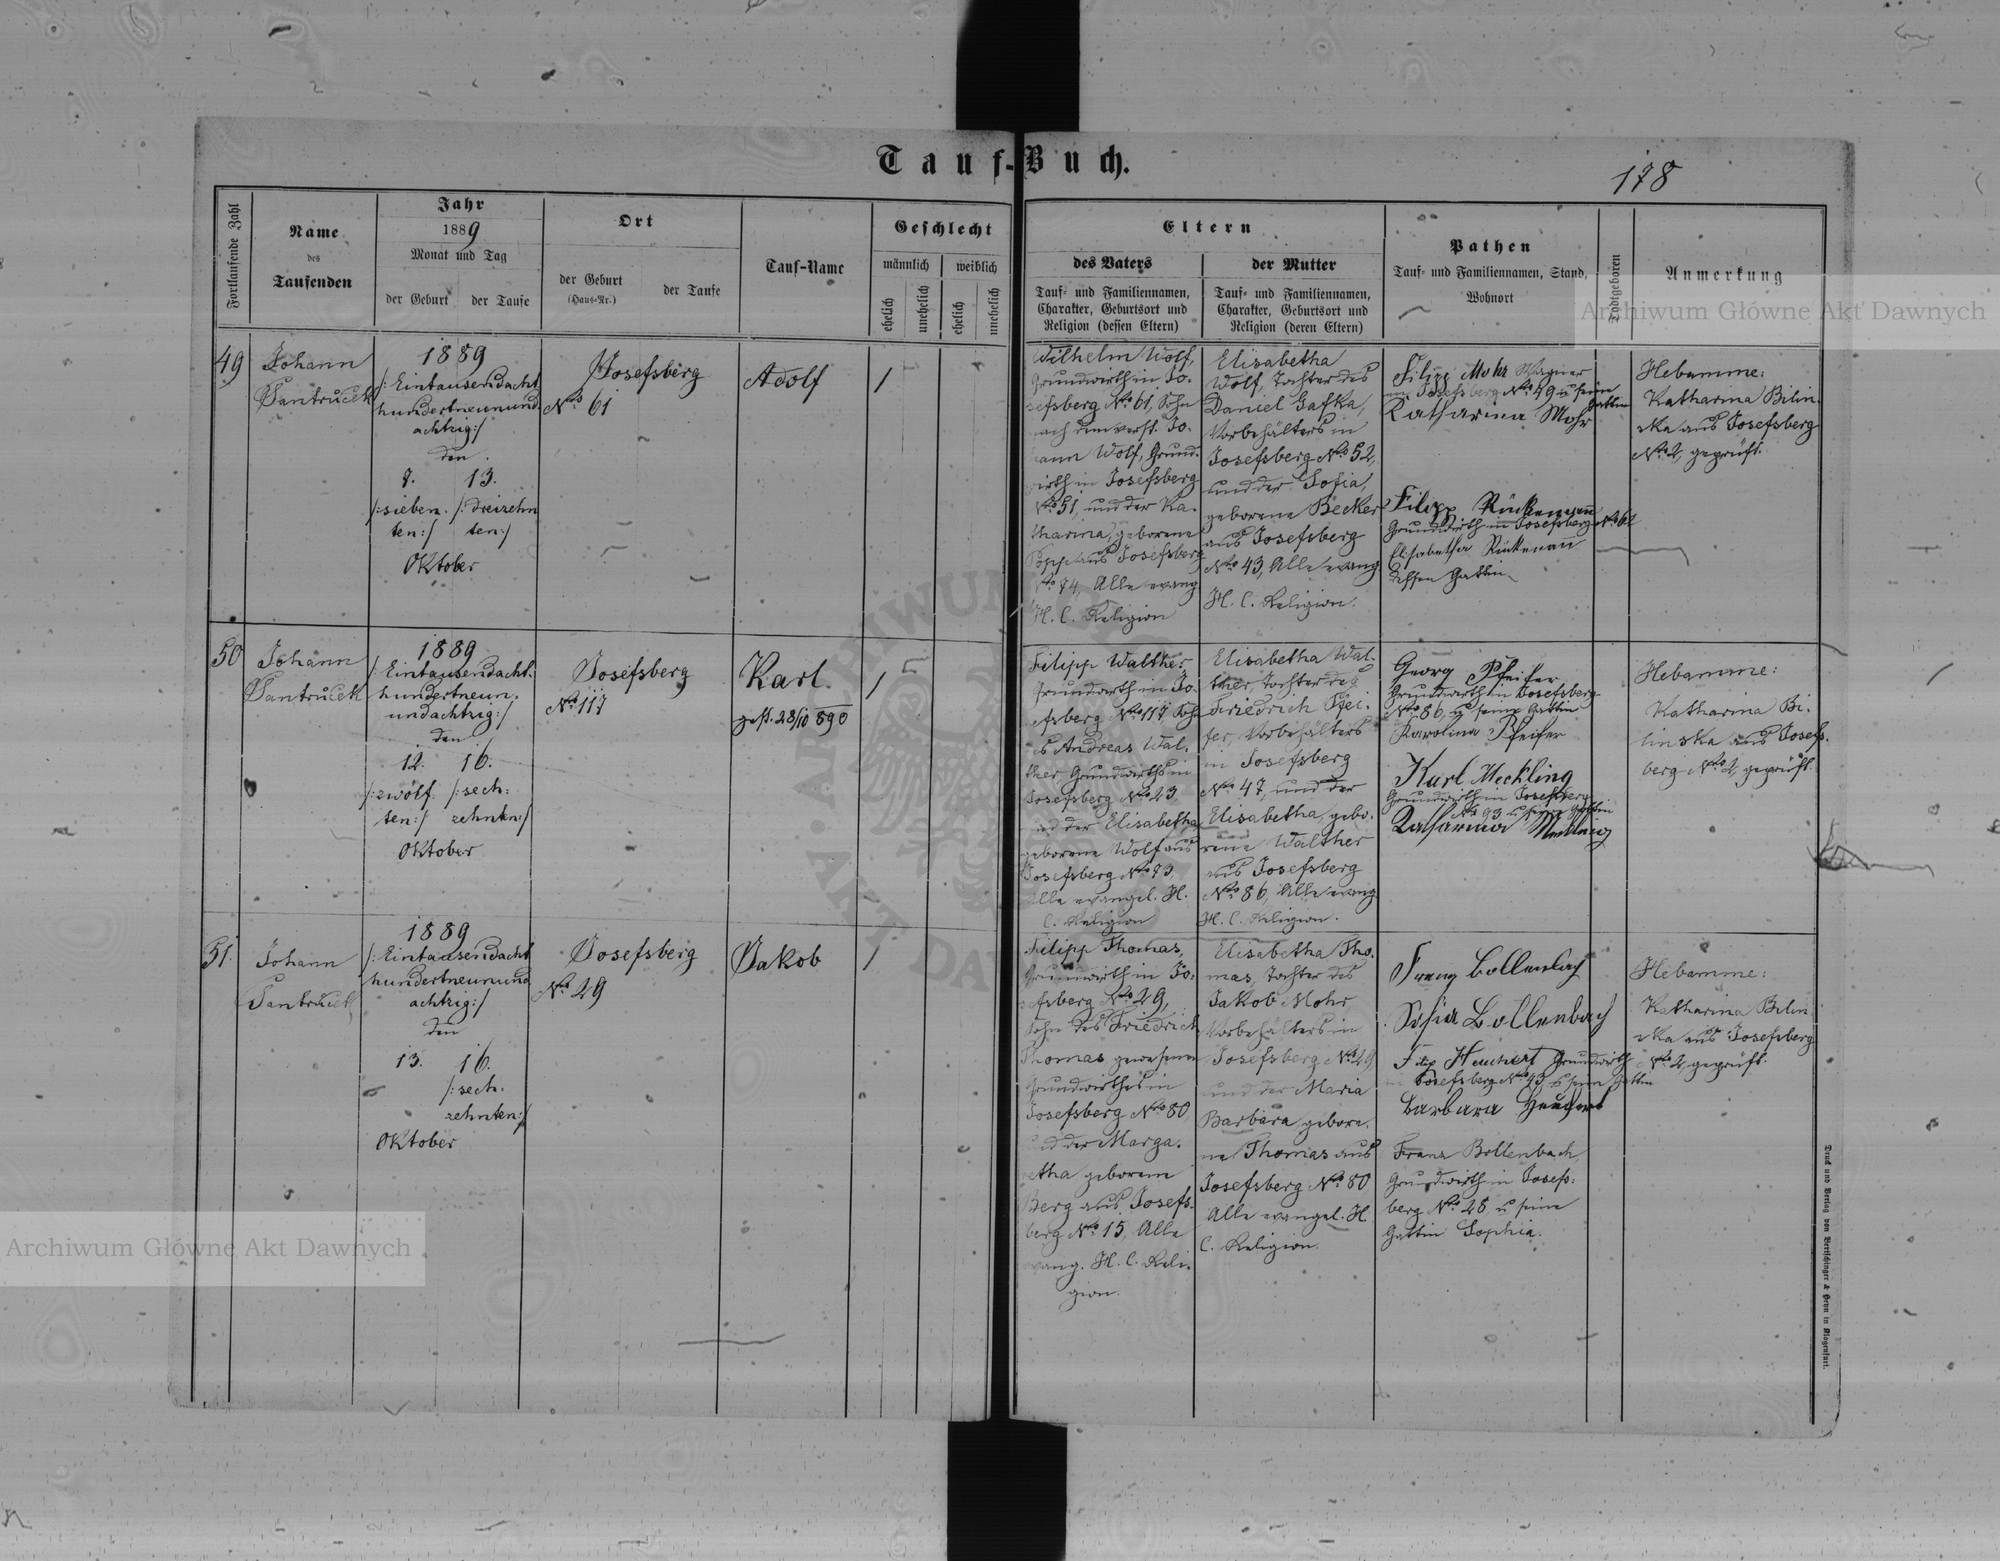 Tauf-Buch.
178
Fortlaufende Zahl
Name
des
Taufenden
Jahr
1889
Monat und Tag
der Geburt
der Taufe
Ort
der Geburt
(Haus-Nr.)
der Taufe
Tauf-Name
Geschlecht
männlich
weiblich
ehelich
unehelich
ehelich
unehelich
Eltern
des Vaters
Tauf- und Familiennamen,
Charakter, Geburtsort und
Religion (dessen Eltern)
der Mutter
Tauf- und Familiennamen,
Charakter, Geburtsort und
Religion (deren Eltern)
Pathen
Tauf- und Familiennamen, Stand,
Wohnort
Todtgeboren
Anmerkung
49
Johann
Santrucek
1889
/:Eintausendacht
hundertneunund
achtzig:/
den
7. 13.
/:sieben. /:dreizehn
ten:/ ten:/
Oktober
Josefsberg
No 61
Adolf
1
Wilhelm Wolf,
Grundwirth in Jo-
sefsberg No 61, Sohn
nach dem verst. Jo-
hann Wolf, Grund-
wirth in Josefsberg
No 51, und der Ka-
tharina, geborene
aus Josefsberg
No 74, Alle evang
H. C. Religion
Elisabetha
Wolf, Tochter des
Daniel Gafka,
Vorbehälters in
Josefsberg No 52,
und der Sofia,
geborene Becker
aus Josefsberg
No 43, Alle evang
H. C. Religion.
Filipp Mohr Wagner
in Josefsberg No 49 u seine
Gattin
Katharina Mohr
Filipp Rückenau
Grundwirth in Josefsberg No 62
Elisabetha Rückenau
dessen Gattin
Hebamme:
Katharina Bilin-
ska aus Josefsberg
No 2, geprüft.
50
Johann
Santrucek
1889
/:Eintausendacht-
hundertneun-
undachtzig:/
den
12. 16.
/:zwölf /:sech-
ten:/ zehnten:/
Oktober
Josefsberg
No 117
Karl
gest. 28/10 890
1
Filipp Walther
Grundwirth in Jo-
sefsberg No 117, Sohn
des Andreas Wal-
ther Grundwirths in
Josefsberg No 23
und der Elisabetha
geborene Wolf aus
Josefsberg No 73
Alle evangel. H.
C. Religion
Elisabetha Wal-
ther, Tochter des
Friedrich Pfei-
fer, Vorbehälters
in Josefsberg
No 47, und der
Elisabetha, gebo-
rene Walther
aus Josefsberg
No 86, Alle evang
H. C. Religion.
Georg Pfeifer
Grundwirth in Josefsberg
No 86, u seine Gattin
Karolina Pfeifer
Karl Meckling
Grundwirth in Josefsberg
No 93 u seine Gattin
Katharina Meckling
Hebamme:
Katharina Bi-
linska aus Josefs-
berg No 2, geprüft.
51.
Johann
Santrucek
1889
/:Eintausendacht
hundertneunund
achtzig:/
den
13. 16.
/:sech-
zehnten:/
Oktober
Josefsberg
No 29
Jakob
1
Filipp Thomas,
Grundwirth in Jo-
sefsberg No 29,
Sohn des Friedrich
Thomas gewesenen
Grundwirthes in
Josefsberg No 80
und der Marga-
retha geborene
Berg aus Josefs-
berg No 15, Alle
evang. H. C. Reli-
gion.
Elisabetha Tho-
mas, Tochter des
Jakob Mohr
Vorbehälters in
Josefsberg No 29
und der Maria
Barbara, gebore-
ne Thomas aus
Josefsberg No 80
Alle evangel. H.
C. Religion.
Franz Bollenbach
Sofia Bollenbach
Filip Heuchert Grundwirth
in Josefsberg No 43, u seine Gattin
Barbara Heuchert
Franz Bollenbach
Grundwirth in Josefs-
berg No 28, u seine
Gattin Sophia.
Hebamme:
Katharina Bilin-
ska aus Josefsberg
No 2, geprüft.
Druck und Verlag von Bertschinger & Heyn in Klagenfurt.
Archiwum Główne Akt Dawnych
Archiwum Główne Akt Dawnych